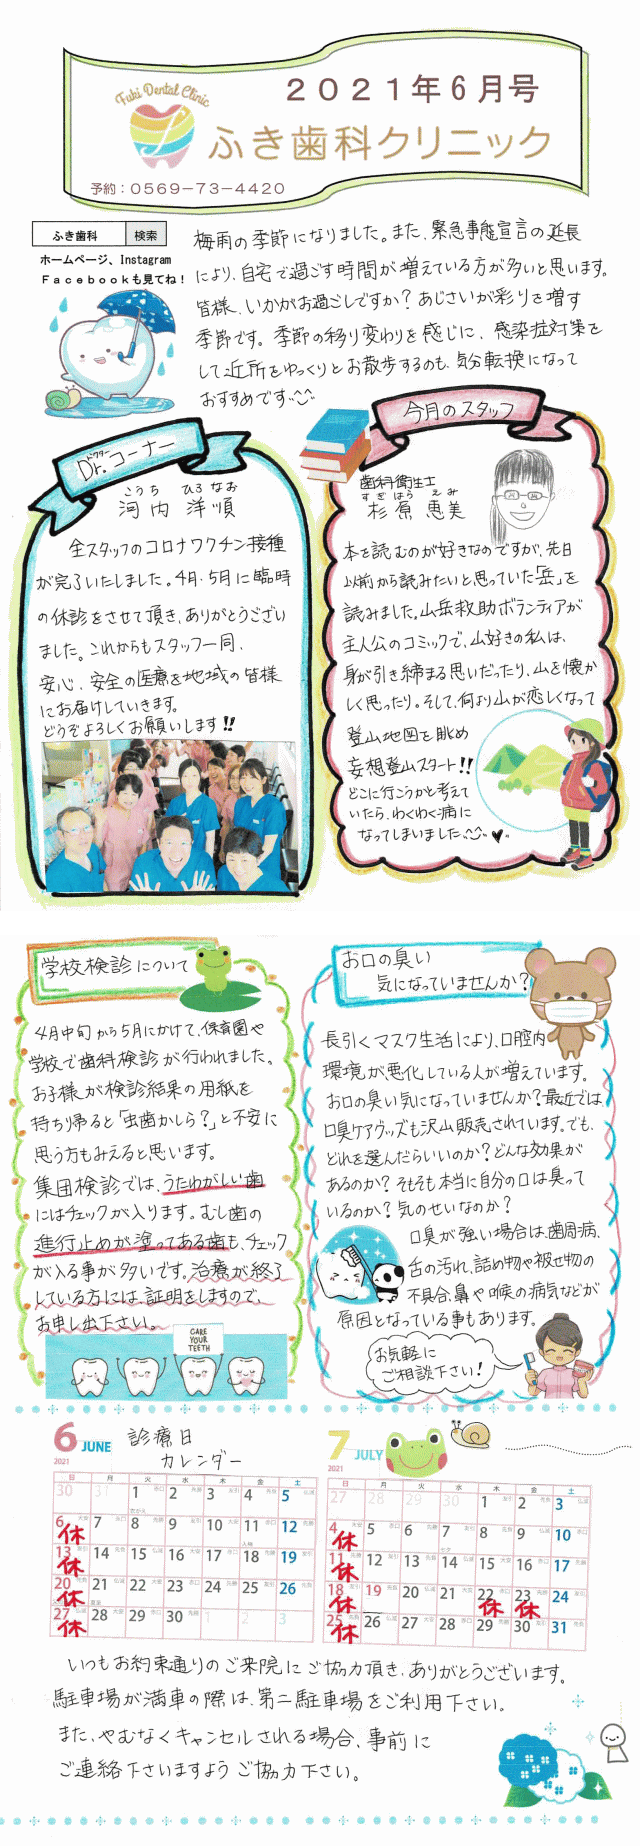 Fuki Dental Clinic
2021年6月号
ふき歯科クリニック
予約：0569-73-4420
ふき歯科 検索
ホームページ、Instagram
Facebookも見てね！
梅雨の季節になりました。また、緊急事態宣言の延長
により、自宅で過ごす時間が増えている方が多いと思います。
皆様、いかがお過ごしですか？あじさいが彩りを増す
季節です。季節の移り変わりを感じに、感染症対策を
して近所をゆっくりとお散歩するのも、気分転換になって
おすすめです
Dr.コーナー
ドクター
こうち ひろなお
河内 洋順
全スタッフのコロナワクチン接種
が完了いたしました。4月・5月に臨時
の休診をさせて頂き、ありがとうござい
ました。これからもスタッフ一同、
安心、安全の医療を地域の皆様
にお届けしていきます。
どうぞよろしくお願いします!!
今月のスタッフ
歯科衛生士
すぎはら えみ
杉原 恵美
本を読むのが好きなのですが、先日
以前から読みたいと思っていた「岳」を
読みました。山岳救助ボランティアが
主人公のコミックで、山好きの私は、
身が引き締まる思いだったり、山を懐か
しく思ったり。そして、何より山が恋しくなって
登山地図を眺め
妄想登山スタート!!
どこに行こうかと考えて
いたら、わくわく病に
なってしまいました
学校検診について
4月中旬から5月にかけて、保育園や
学校で歯科検診が行われました。
お子様が検診結果の用紙を
持ち帰ると「虫歯かしら？」と不安に
思う方もみえると思います。
集団検診では、うたがわしい歯
にはチェックが入ります。むし歯の
進行止めが塗ってある歯も、チェック
が入る事が多いです。治療が終了
している方には、証明をしますので、
お申し出下さい。
CARE
YOUR
TEETH
お口の臭い
気になっていませんか？
長引くマスク生活により、口腔内
環境が悪化している人が増えています。
お口の臭い気になっていませんか？最近では
口臭ケアグッズも沢山販売されています。でも、
どれを選んだらいいのか？どんな効果が
あるのか？そもそも本当に自分の口は臭って
いるのか？気のせいなのか？
口臭が強い場合は、歯周病、
舌の汚れ、詰め物や被せ物の
不具合、鼻や喉の病気などが
原因となっている事もあります。
お気軽に
ご相談下さい！
6 JUNE
2021
診療日
カレンダー
日 月 火 水 木 金 土
30 31 1 2 3 4 5
6 休 7 8 9 10 11 12
13 休 14 15 16 17 18 19
20 休 21 22 23 24 25 26
27 休 28 29 30 1 2 3
7 JULY
2021
日 月 火 水 木 金 土
27 28 29 30 1 2 3
4 休 5 6 7 8 9 10
11 休 12 13 14 15 16 17
18 休 19 20 21 22 休 23 休 24
25 休 26 27 28 29 30 31
いつもお約束通りのご来院にご協力頂き、ありがとうございます。
駐車場が満車の際は、第二駐車場をご利用下さい。
また、やむなくキャンセルされる場合、事前に
ご連絡下さいますようご協力下さい。